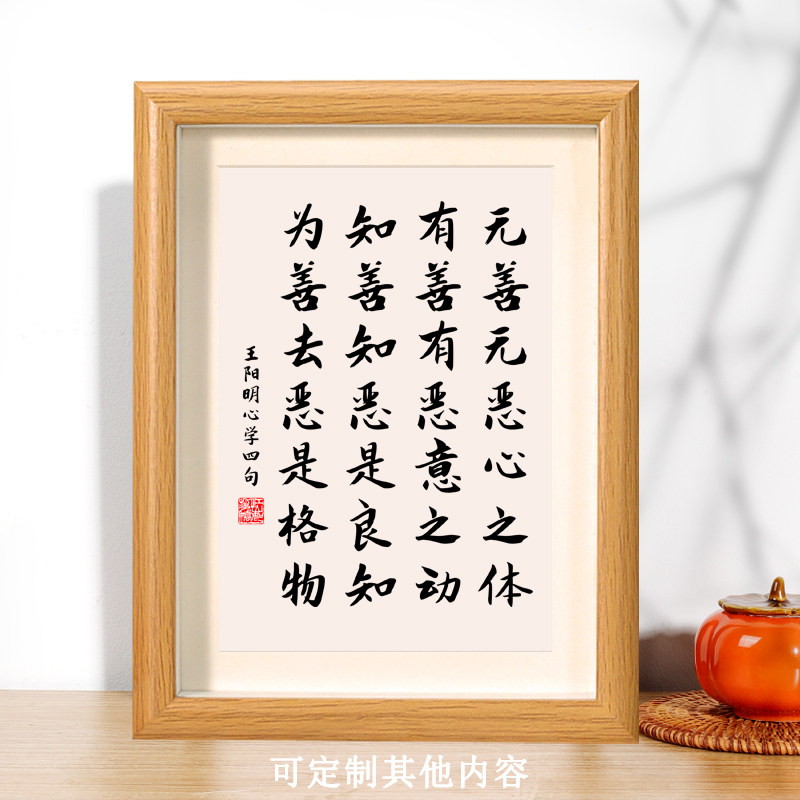 无善无恶心之体
有善有恶意之动
知善知恶是良知
为善去恶是格物
王阳明心学四句
可定制其他内容